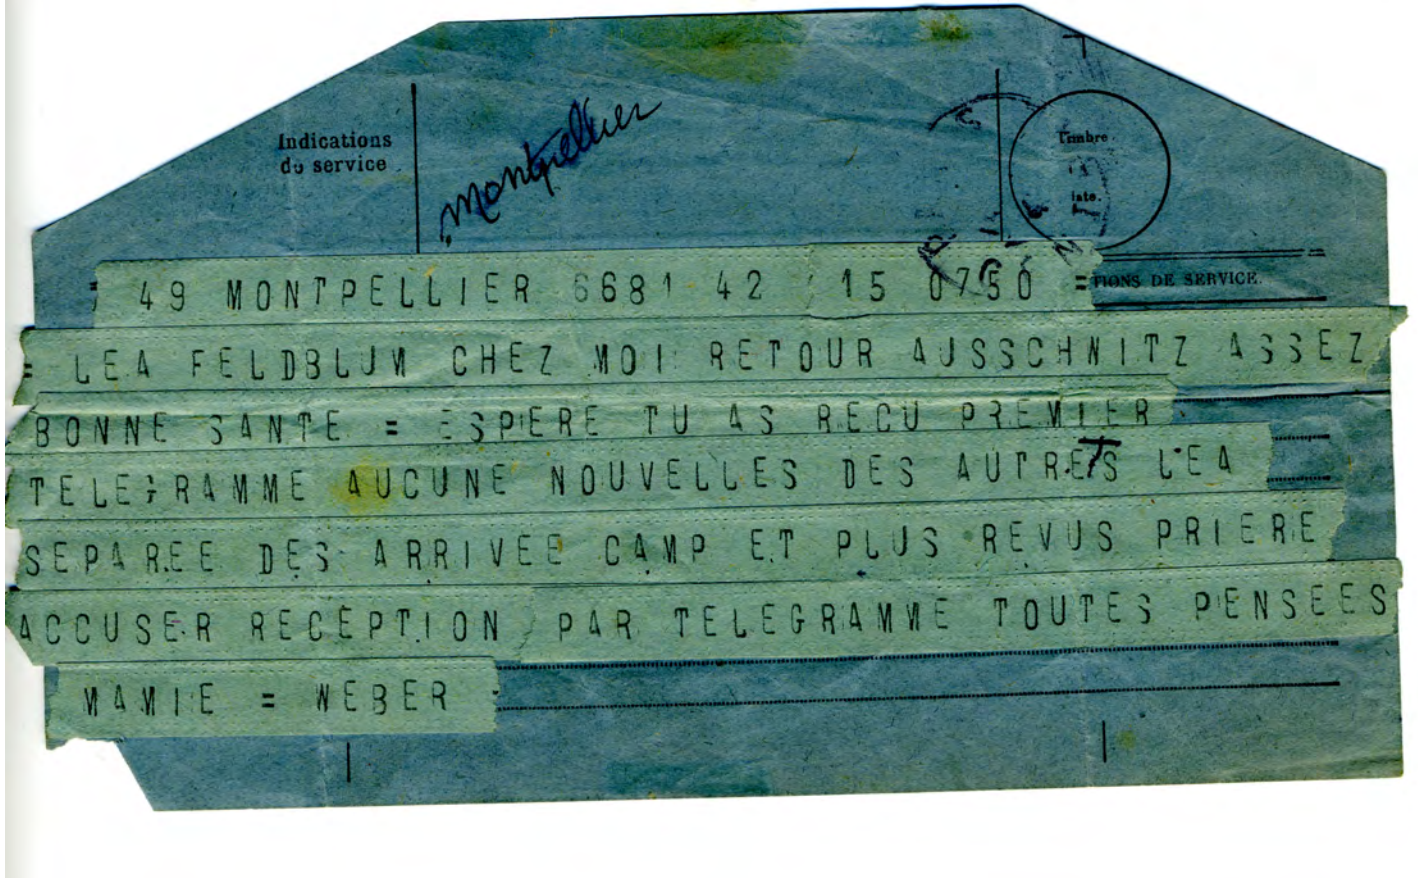 Indications
du service
Montpellier
Timbre
à
date.
= 49 MONTPELLIER 6681 42 15 0750 =
TIONS DE SERVICE.
= LEA FELDBLUM CHEZ MOI RETOUR AUSSCHWITZ ASSEZ
BONNE SANTE = ESPERE TU AS RECU PREMIER
TELEGRAMME AUCUNE NOUVELLES DES AUTRES LEA
SEPAREE DES ARRIVEE CAMP ET PLUS REVUS PRIERE
ACCUSER RECEPTION PAR TELEGRAMME TOUTES PENSEES
MAMIE = WEBER